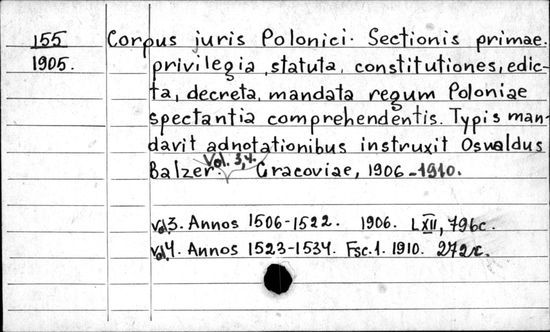 155 Corpus juris Polonici. Sectionis primae.
1905. privilegia, statuta, constitutiones, edic-
ta, decreta, mandata regum Poloniae
spectantia comprehendentis. Typis man-
davit adnotationibus instruxit Oswaldus
Balzer. Vol. 3,4. Cracoviae, 1906-1910.
Vol.3. Annos 1506-1522. 1906. LXII, 796c.
Vol.4. Annos 1523-1534. Fsc.1. 1910. 272c.